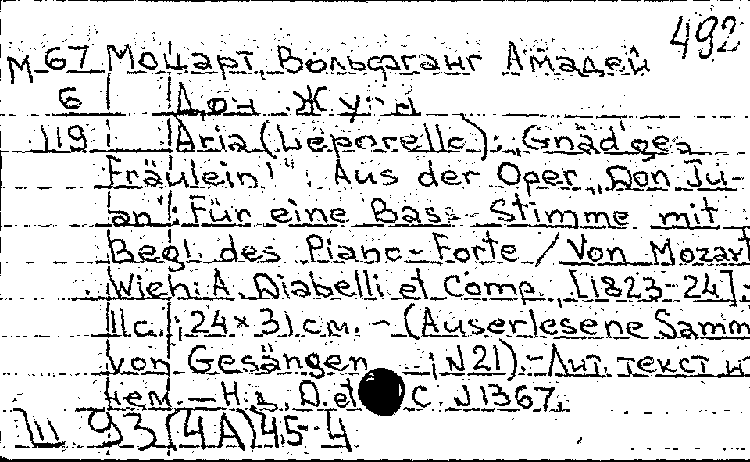 492
М 67 Моцарт, Вольфганг Амадей
6 Дон Жуан
119 Aria (Leporello): „Gnäd'ges
Fräulein!". Aus der Oper „Don Ju-
an": Für eine Bass-Stimme mit
Begl. des Piano-Forte / Von Mozart
Wien: A. Diabelli et Comp., [1823-24].-
11 с.; 24×31 см. – (Auserlesene Samm
von Gesängen ; N21).- Лит. текст и
нем. – Н.д. D. et C. N 1367.
Ш 93(4А)45-4